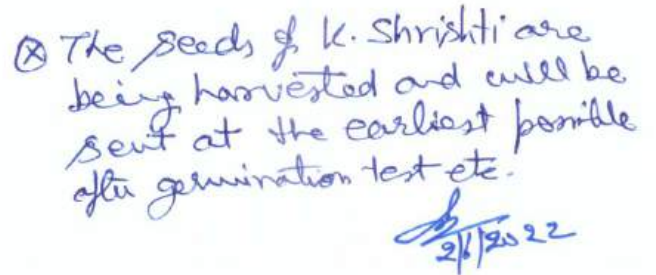 ⊗ The seeds of K. Shrishti are
being harvested and will be
sent at the earliest possible
after germination test etc.
2/6/2022